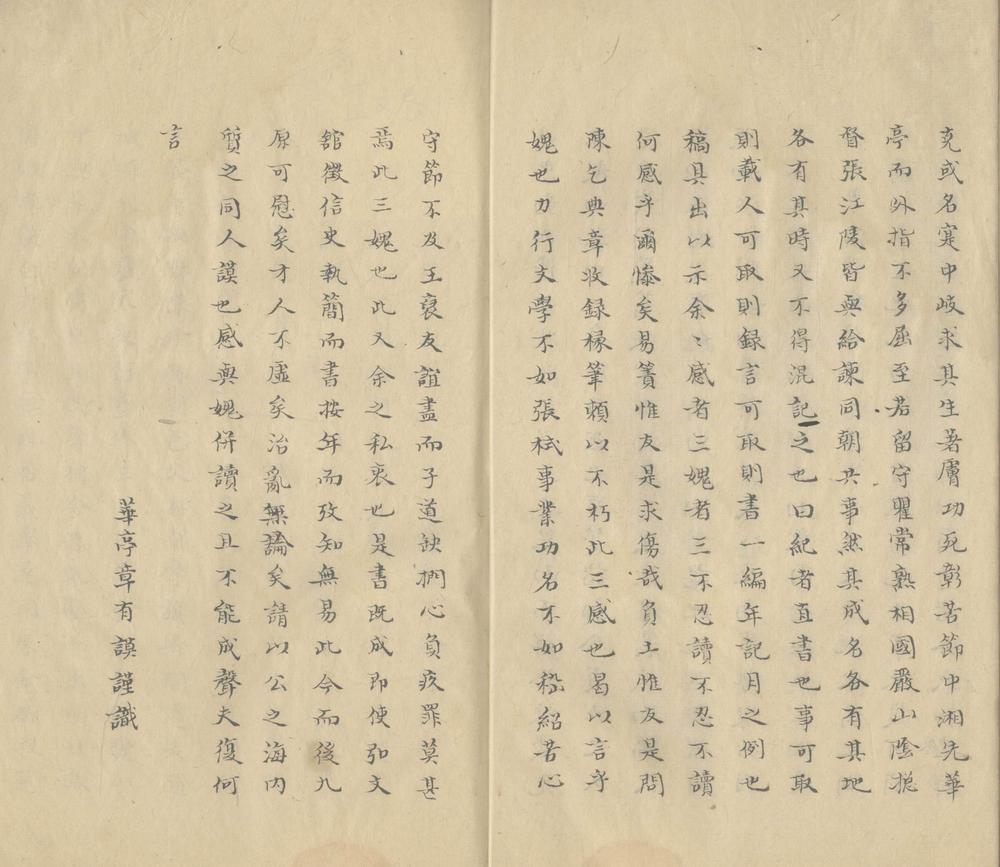 克或名寔中岐求其生著膚功死彰苦節中湘先華
亭而外指不多屈至若留守瞿常熟相國嚴山陰揔
督張江陵皆與給諫同朝共事然其成名各有其地
各有其時又不得混記之也曰紀者直書也事可取
則載人可取則録言可取則書一編年記月之例也
稿具出以示余〻感者三媿者三不忍讀不忍不讀
何感乎爾慘矣易簀惟友是求傷哉負土惟友是問
陳乞典章收録椽筆頼以不朽此三感也曷以言乎
媿也力行文學不如張栻事業功名不如嵇紹苦心
守節不及王裒友誼盡而子道缺捫心負疚罪莫甚
焉此三媿也此又余之私衷也是書既成即使弘文
舘徵信史執簡而書按年而攷知無易此今而後九
原可慰矣才人不虛矣治亂無論矣請以公之海内
質之同人謨也感與媿併讀之且不能成聲夫復何
言
華亭章有謨謹識